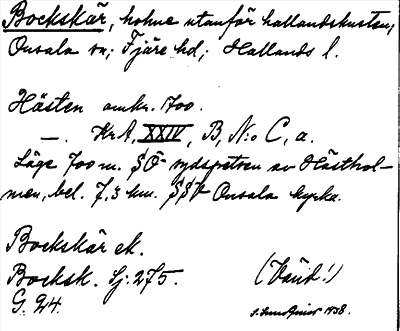 Bockskär, holme utanför hallandskusten,
Onsala sn; Fjäre hd; Hallands l.
Hästen omkr. 1700.
—. KrA, XXIV, B, N:o C, a.
Läge 700 m. SÖ sydspetsen av Hästhol-
men, bel. 7,3 km. SSV Onsala kyrka.
Bockskär ek.
Bocksk. Sj: 275.
G. 24.
(Vänd!)
1938.